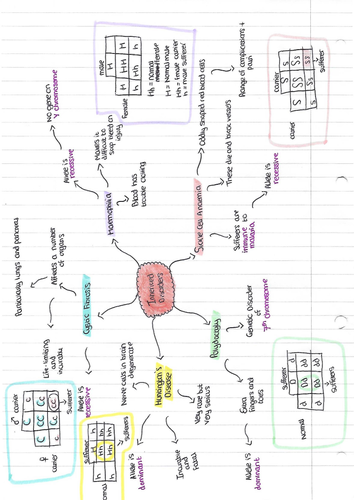 Inherited
Disorders
Haemophilia
Blood has
trouble clotting
Makes it
difficult to
stop bleed on
injury
Allele is
recessive
No gene on
Y chromosome
male
female
H = normal male
Hh = female carrier
h = male sufferer
Sickle Cell Anaemia
Oddly shaped red blood cells
Range of complications +
pain
These die and block vessels
Allele is
recessive
Sufferers are
immune to
malaria
carrier
S s
S SS Ss
s Ss ss
sufferer
carrier
Polydactyly
Genetic Disorder
of
7th chromosome
Extra
fingers and
toes
Allele is
dominant
sufferer
D d
d Dd dd
d Dd dd
normal
sufferers
Huntington's
Disease
Very rare but
very serious
Incurable
and
fatal
Allele is
dominant
Nerve cells in brain
degenerate
sufferer
normal
sufferers
Cystic Fibrosis
Affects a number
of organs
Particularly lungs and pancreas
Life-limiting
and
incurable
Allele is
recessive
♂ carrier
C c
C CC Cc
c Cc cc
sufferer
♀
carrier